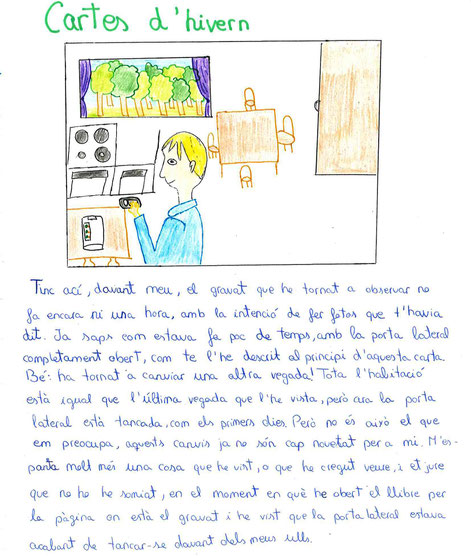 Cartes d'hivern
Tinc ací, davant meu, el gravat que he tornat a observar no
fa encara ni una hora, amb la intenció de fer fotos que t'havia
dit. Ja saps com estava fa poc de temps, amb la porta lateral
completament obert, com te l'he descrit al principi d'aquesta carta.
Bé: ha tornat a canviar una altra vegada! Tota l'habitació
està igual que l'última vegada que l'he vista, però ara la porta
lateral està tancada, com els primers dies. Però no és això el que
em preocupa, aquests canvis ja no són cap novetat per a mi. M'es-
panta molt més una cosa que he vist, o que he cregut veure, i et jure
que no ho he somiat, en el moment en què he obert el llibre per
la pàgina on està el gravat i he vist que la porta lateral estava
acabant de tancar-se davant dels meus ulls.